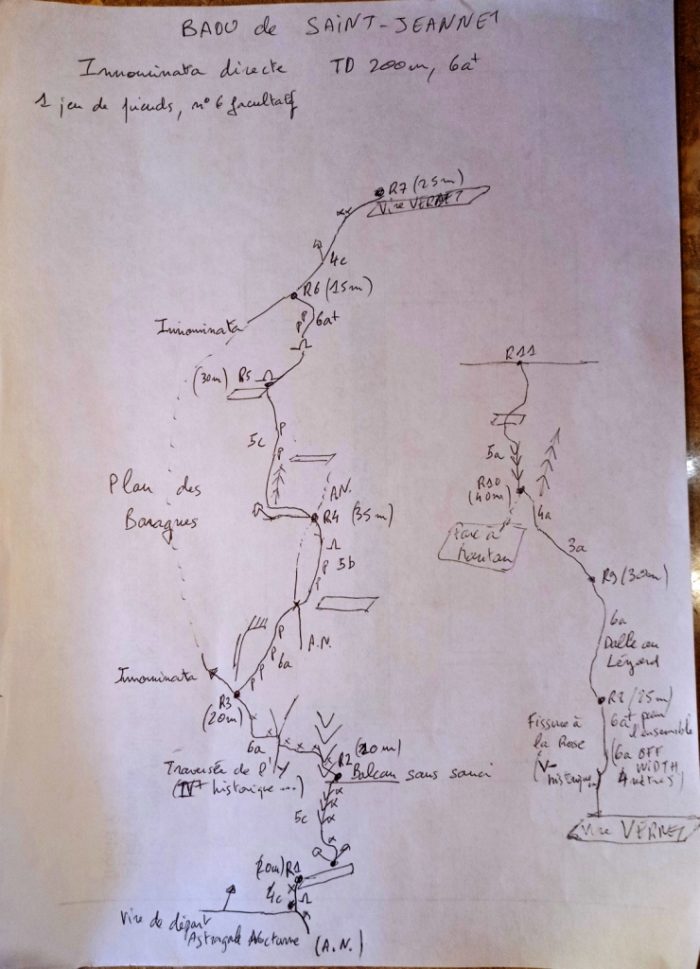 BAOU de SAINT-JEANNET
Innominata directe TD 200m, 6a+
1 jeu de friends, n°6 facultatif
R7 (25m)
Vire VERNET
4c
R6 (15m)
6a+
Innominata
(30m) R5
5c
Plan des
Baragnes
A.N.
R4 (35m)
5b
A.N.
6a
Innominata
R3
(20m)
6a
R2 (20m)
Traversée de l'Y
(IV+ historique...)
Balcon sans souci
5c
(20m) R1
4c
Vire de départ
Astragale Nocturne (A.N.)
R11
5a
R10
(40m)
4a
3a
R9 (30m)
6a
Dalle au
Lézard
R8 (25m)
6a+ pour
l'ensemble
Fissure à
la Rose
(V-
historique...
(6a OFF
WIDTH
4 mètres)
Vire VERNET